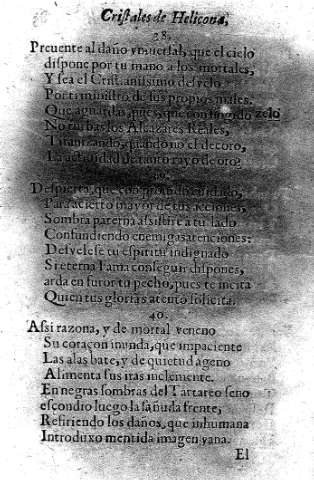 Cristales de Helicona,
38.
Preuente al daño vniuersal, que el cielo
dispone por tu mano a los mortales,
Y sea el Cristianissimo desvelo
Por ti ministro de sus propios males.
Que aguardas, pues, que con fingido zelo
No turbas los Alcaçares Reales,
Tiranizando, quando no el decoro,
La actiuidad de tanto rayo de oro?
39.
Despierta, que con cuidado,
Para acierto mayor de tus acciones,
Sombra paterna assistire a tu lado
Confundiendo enemigas atenciones:
Desvelese tu espiritu indignado
Si eterna Fama conseguir dispones,
arda en furor tu pecho, pues te incita
Quien tus glorias atento solicita.
40.
Assi razona, y de mortal veneno
Su coraçon inunda, que impaciente
Las alas bate, y de quietud ageno
Alimenta sus iras inclemente.
En negras sombras del Tartareo seno
escondio luego la sañuda frente,
Refiriendo los daños, que inhumana
Introduxo mentida imagen vana.
El